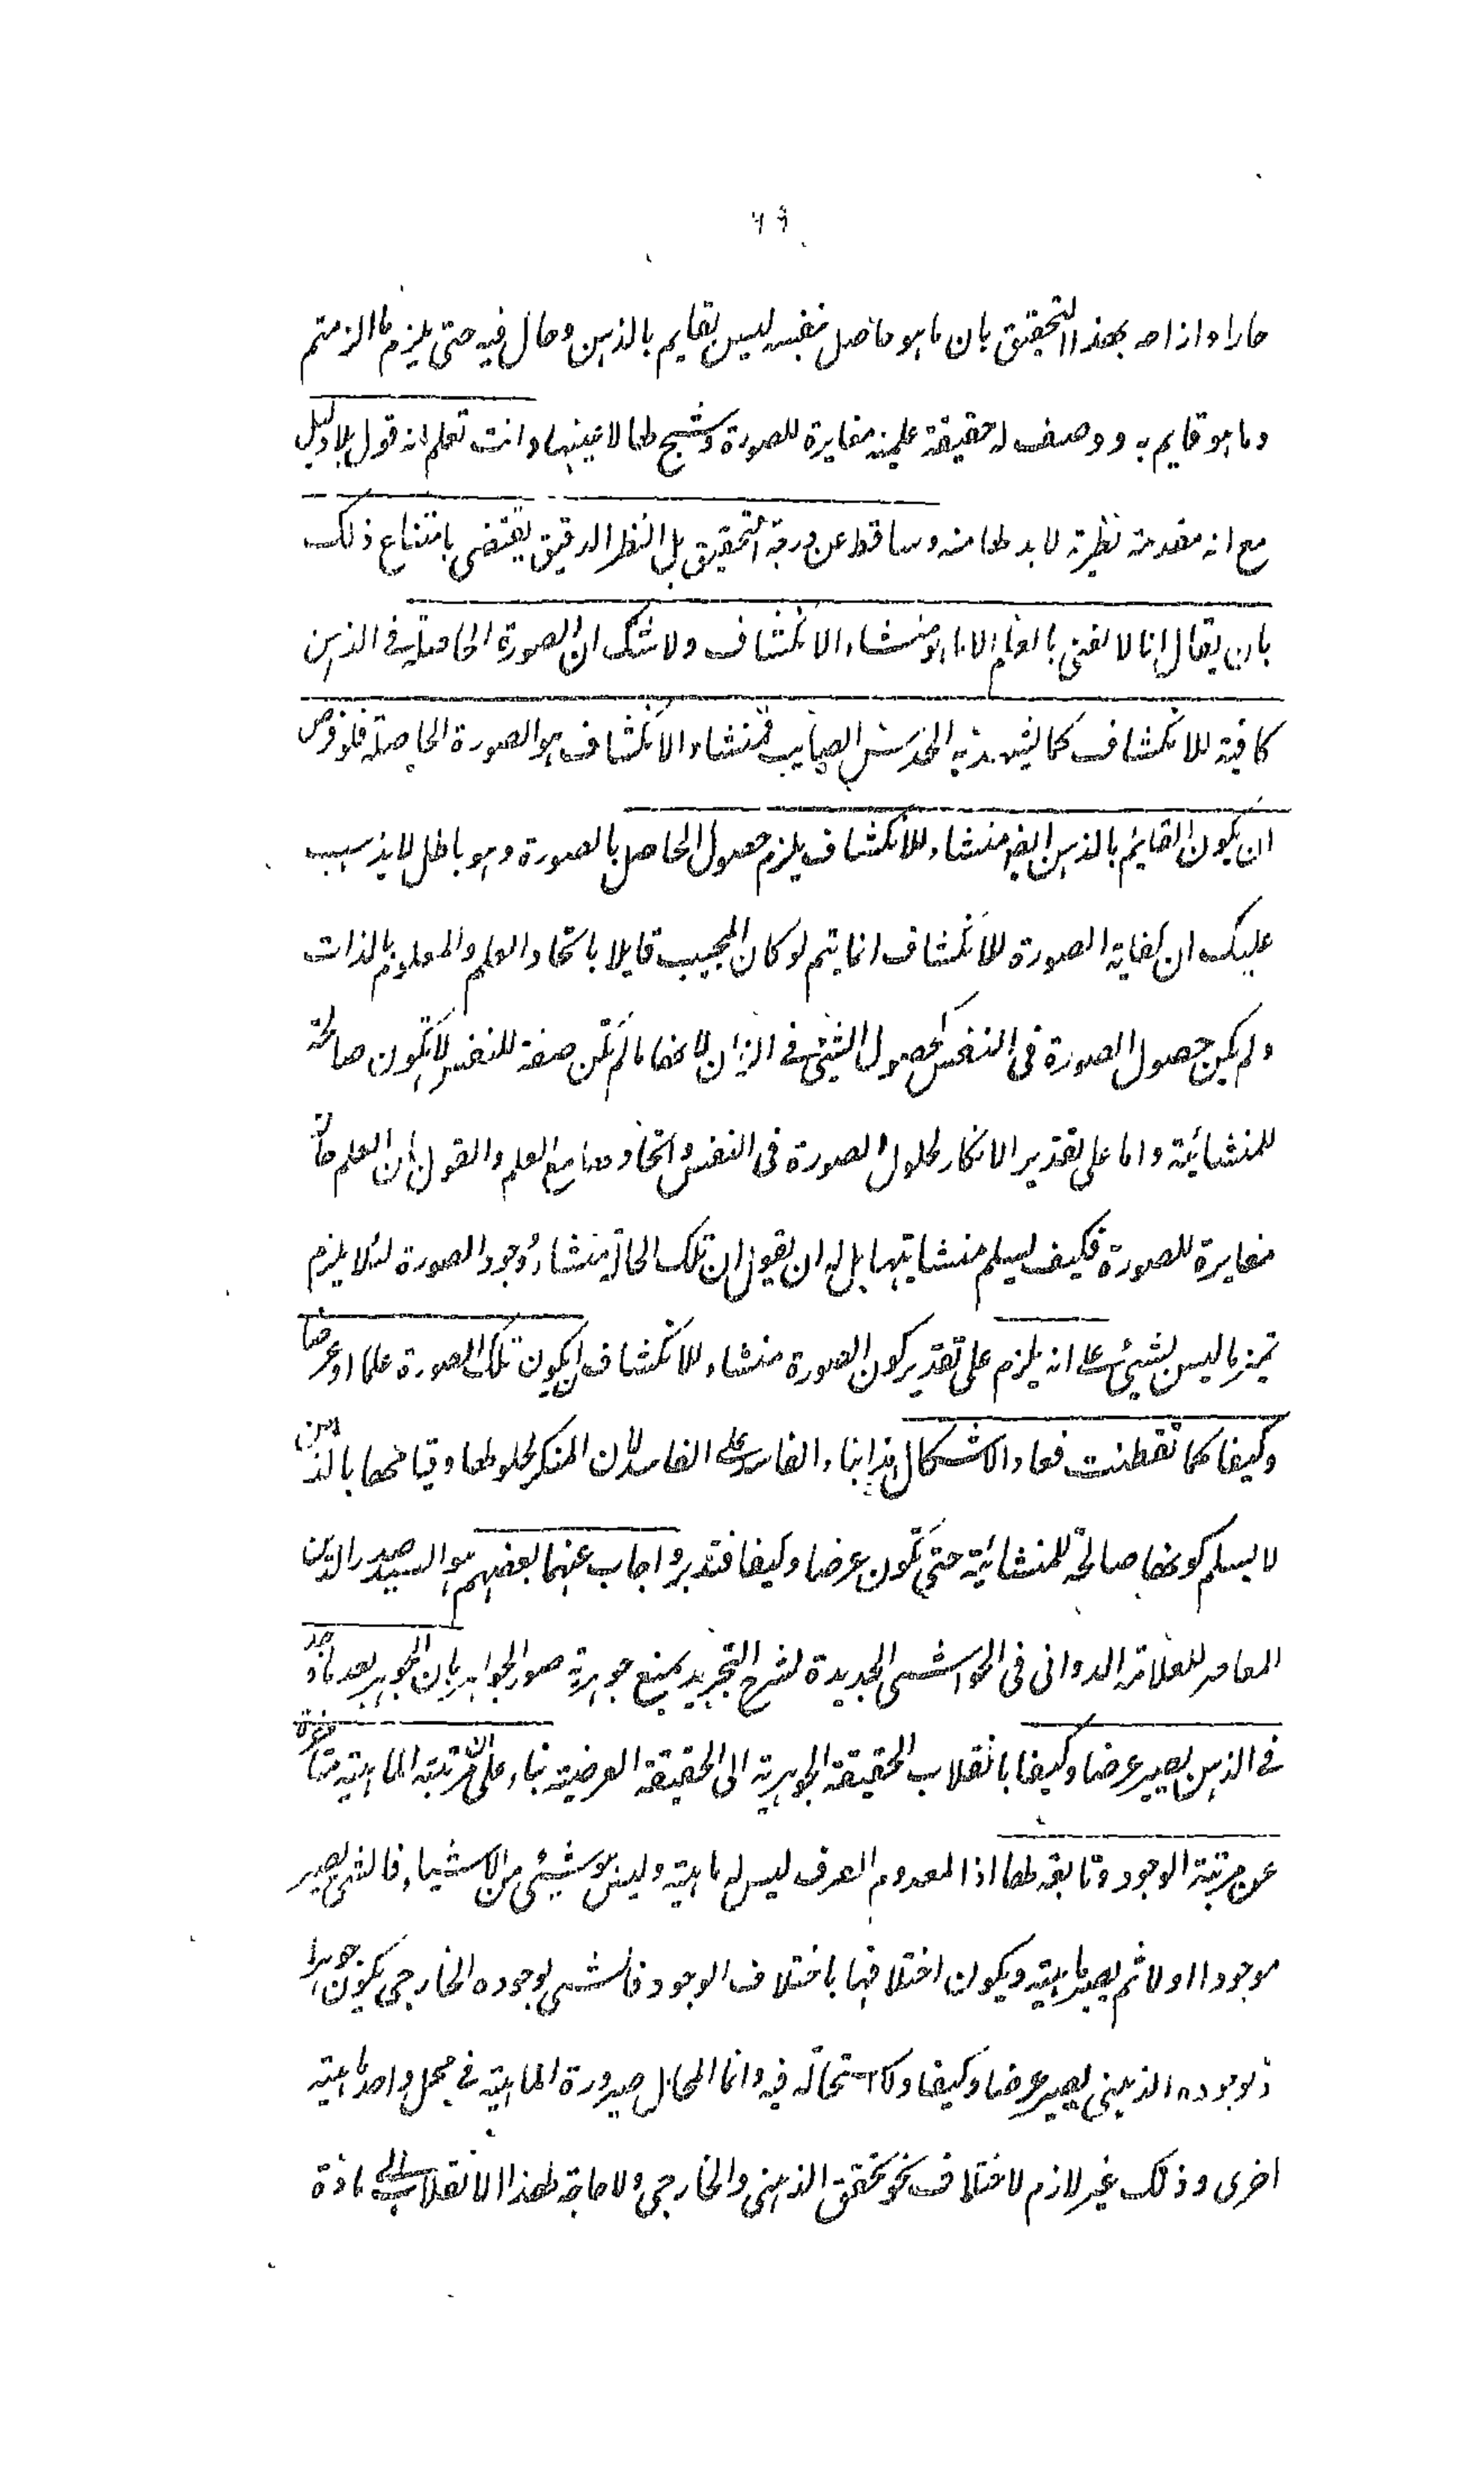 ٦٩
حارا واذا حه بهذا التحقيق بان ما هو حاصل بنفسه ليس بقايم بالذهن وحال فيه حتى يلزم ما الزمتم
وما هو قايم به ووصف له حقيقة علمية مغايرة للصورة وشبح لها لا عينها وانت تعلم انه قول بلا دليل
مع انه مقدمة نظرية لا بد لها منه وساقط عن درجة التحقيق بل النظر الدقيق يقتضي بامتناع ذلك
بان يقال انا لا نعني بالعلم الا ما هو منشاء الانكشاف ولا شك ان الصورة الحاصلة في الذهن
كافية للانكشاف كما يشهد به الحدس الصايب فمنشاء الانكشاف هو الصورة الحاصلة فلو فرض
ان يكون القايم بالذهن ايضا منشاء للانكشاف يلزم حصول الحاصل بالصورة وهو باطل لا يذهب
عليك ان كفاية الصورة للانكشاف انما يتم لو كان المجيب قايلا باتحاد العلم والمعلوم بالذات
ولم يكن حصول الصورة في النفس كحصول الشيئ في الزمان لانها ما لم تكن صفة للنفس لا تكون صالحة
للمنشائية واما على تقدير الانكار لحلول الصورة في النفس واتحادها مع العلم والقول بان العلم حالة
مغايرة للصورة فكيف يسلم منشايتها بل له ان يقول ان تلك الحالة منشاء وجود الصورة لئلا يلزم
تميز ما ليس بشيئ على انه يلزم على تقدير كون الصورة منشاء للانكشاف ان يكون تلك الصورة علما او عرضا
وكيفا كما تفطنت فعاد الاشكال هذا بناء الفاسد على الفاسد لان المنكر لحلولها وقيامها بالذهن
لا يسلم كونها صالحة للمنشائية حتى تكون عرضا وكيفا فتدبر واجاب عنهما بعضهم هو السيد صدر الدين
المعاصر للعلامة الدواني في الحواشي الجديدة لشرح التجريد بمنع جوهرية صور الجواهر بان الجوهر بعد ما وجد
في الذهن يصير عرضا وكيفا بانقلاب الحقيقة الجوهرية الى الحقيقة العرضية بناء على ان مرتبة الماهية متاخرة
عن مرتبة الوجود وتابعة لها اذ المعدوم الصرف ليس له ماهية وليس هو شيئ من الاشياء فالشئ يصير
موجودا اولا ثم يصير ماهية ويكون اختلافها باختلاف الوجود فالشئ بوجوده الخارجي يكون جوهرا
وبوجوده الذهني يصير عرضا وكيفا ولا استحالة فيه وانما المحال صيرورة الماهية في محل واحد ماهية
اخرى وذلك غير لازم لاختلاف نحو تحقق الذهني والخارجي ولا حاجة لهذا الانقلاب الى مادة